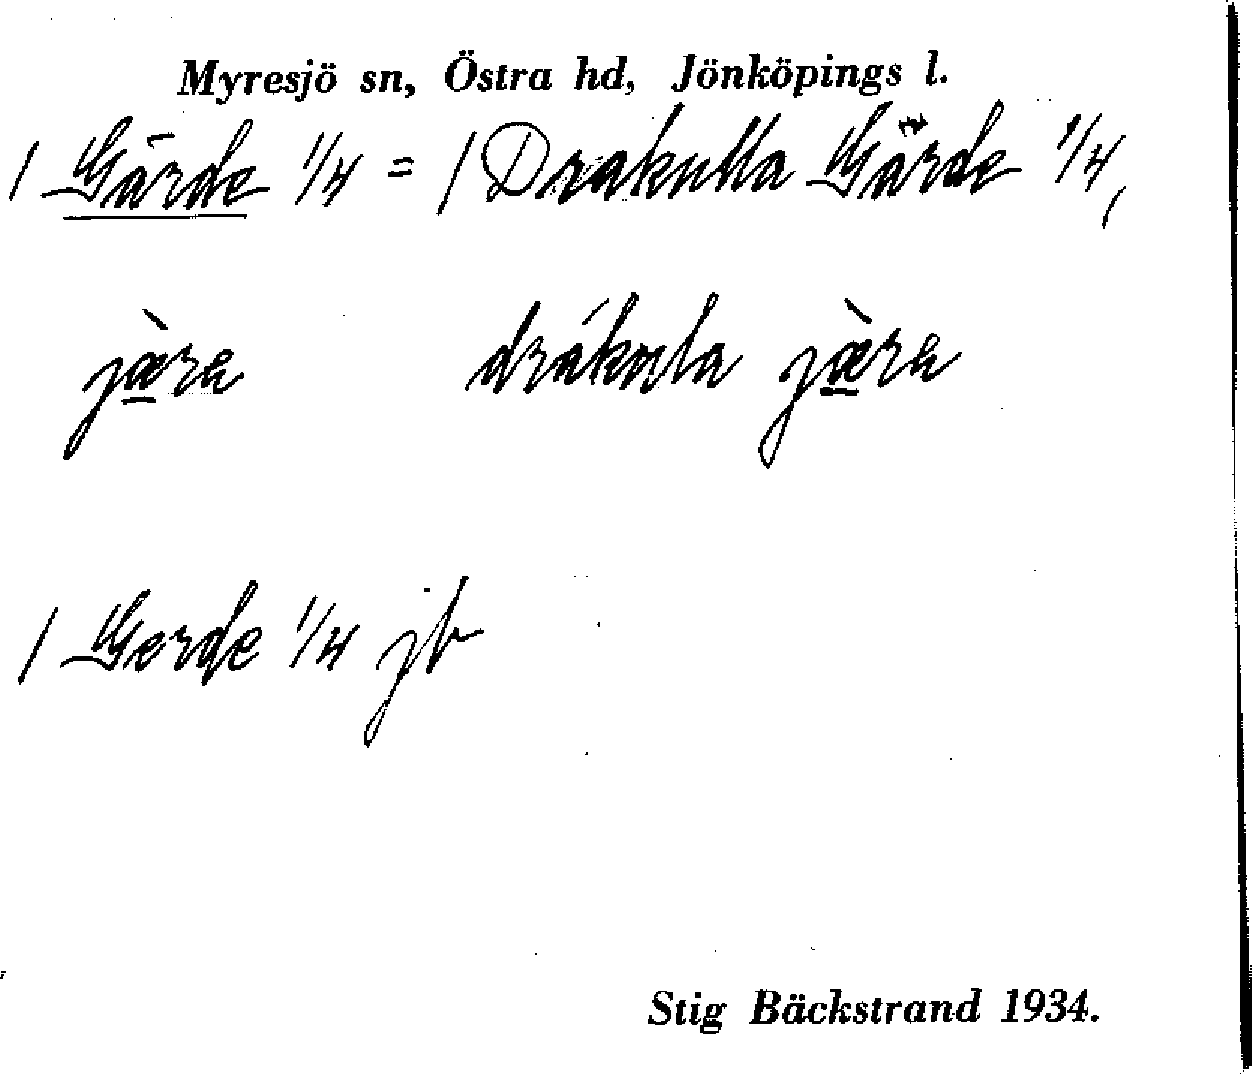 Myresjö sn, Östra hd, Jönköpings l.
/ Gärde 1/4 = / Drakulla Gärde 1/4,
jæ̀ra drákula jæ̀ra
/ Gerde 1/4 jb
Stig Bäckstrand 1934.